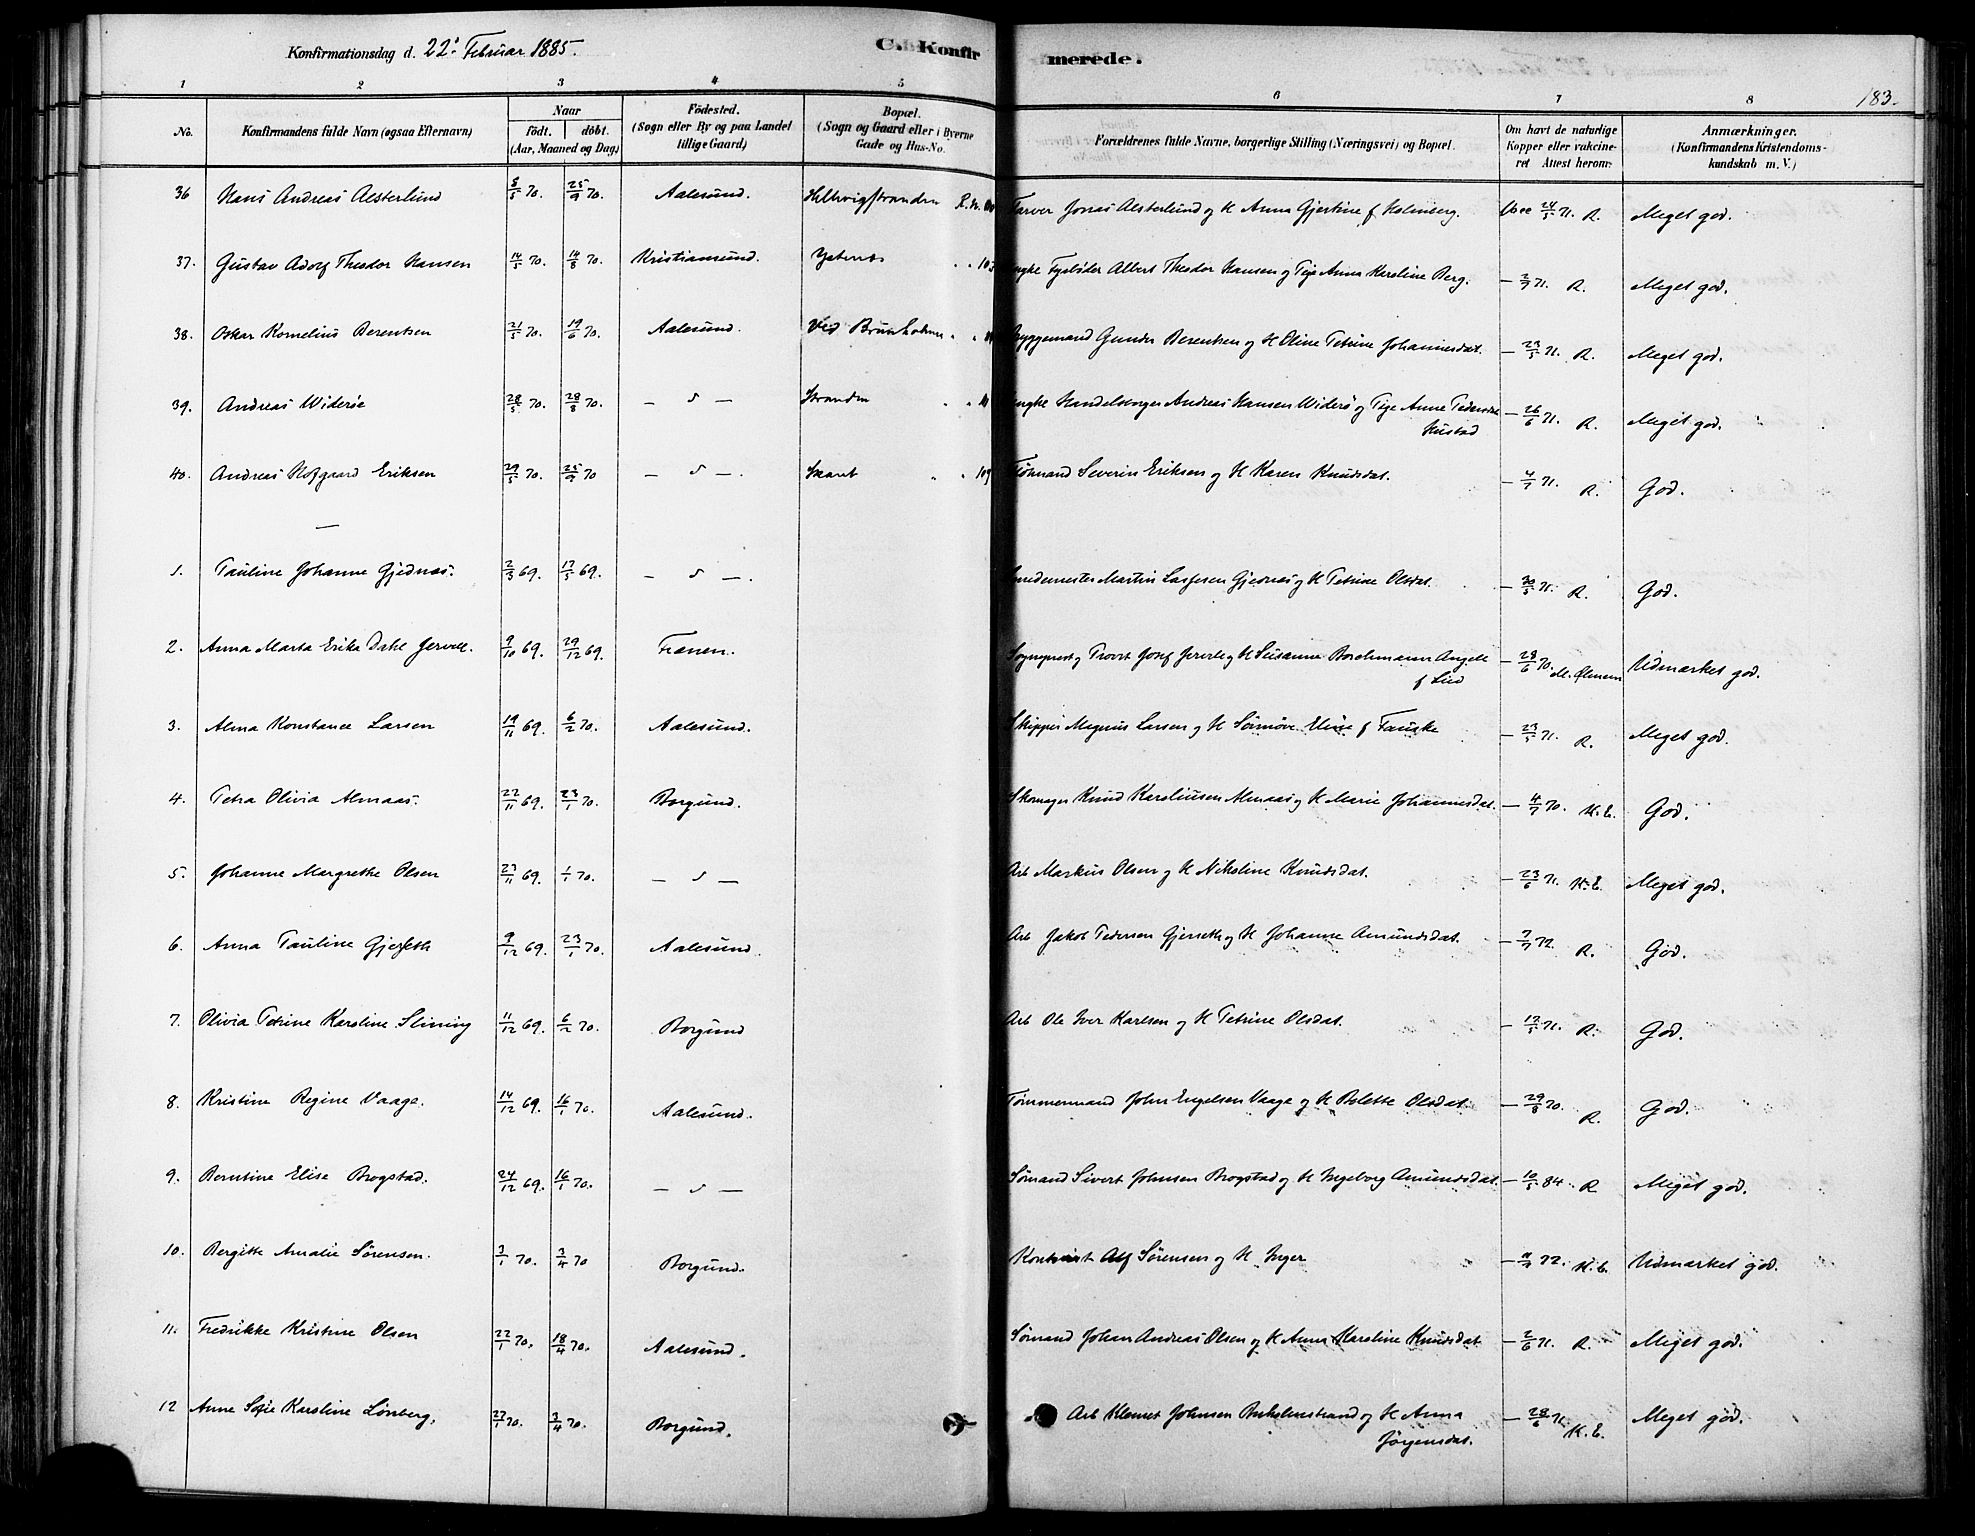 Konfirmationsdag d. 22. Februar 1885.
C. Konfirmerede.
183.
1 2 3 4 5 6 7 8
No. Konfirmandens fulde Navn (ogsaa Efternavn) Naar födt. döbt. (Aar, Maaned og Dag) Födested. (Sogn eller By og paa Landet tillige Gaard) Bopæl. (Sogn og Gaard eller i Byerne Gade og Hus-No. Forældrenes fulde Navne, borgerlige Stilling (Næringsvei) og Bopæl. Om havt de naturlige Kopper eller vakcineret Attest herom: Anmærkninger. (Konfirmandens Kristendomskundskab m. V.)
36 Hans Andreas Alsterlund 8/5 70. 25/9 70. Aalesund. Farver Jonas Alsterlund og H Anna Gjertine f Holmberg. 24/5 71. R. Meget god.
37. Gustav Adolf Theodor Hansen 14/5 70. 14/8 70. Kristiansund. Albert Theodor Hansen og Pige Anna Karoline Berg. – 3/7 71. R. Meget god.
38. Oskar Kornelius Berentsen 21/5 70. 19/6 70. Aalesund. Ved Brunholmen Byggemand Gunder Berentsen og H Oline Petrine Johannesdat. – 23/5 71. R. Meget god.
39. Andreas Widerøe 28/5 70. 28/8 70. – s – Stranden Ungke Handelsborger Andreas Hansen Widerö og Pige Anne Pedersdat Hustad – 26/6 71. R. Meget god.
40. Andreas Hofgaard Eriksen 29/5 70. 25/9 70 – s –. Skaret 109 Severin Eriksen og H Karen Knudsdat. – 4/7 71. R. God.
—
1. Pauline Johanne Gjednæs. 2/3 69. 17/5 69. – s –. Smedemester Martin Lassesen Gjednæs og H Petrine Olsdat. – 30/5 71. R. God.
2. Anna Marta Erika Dahl Jervell. 9/10 69. 29/12 69. Frænen. Sogneprest og Provst Josef Jervell og H Susanne Borchmann Angell f Lied – 28/6 70. Udmærket god.
3. Alma Konstance Larsen 19/11 69. 6/2 70. Aalesund. Skipper Magnus Larsen og H Sörnöve Elise f Fauske – 23/5 71. R. Meget god.
4. Petra Olivia Almaas. 22/11 69. 23/1 70. Borgund. Skomager Knud Karoliusen Almaas og H Marie Johannesdat. – 4/7 70. K. E. God.
5. Johanne Margrethe Olsen 23/11 69. 1/1 70. – s – Arb Markus Olsen og H Nikoline Knudsdat. – 23/6 71. K. E. Meget god.
6. Anna Pauline Gjerseth 9/12 69. 23/1 70. Aalesund. Arb Jakob Pedersen Gjerseth og H Johanne Amundsdat. – 7/7 72. R. God.
7. Olivia Petrine Karoline Slinning 11/12 69. 6/2 70. Borgund Arb Ole Iver Karlsen og H Petrine Olsdat. – 12/5 71. R. God.
8. Kristine Regine Vaage. 14/12 69. 16/1 70. Aalesund. Tømmermand John Engelsen Vaage og H Bolette Olsdat. – 29/8 70. R. God.
9. Berntine Elise Brogstad. 24/12 69. 16/1 70. – s – Sömand Sivert Johnsen Brogstad og H Ingeborg Amundsdat. – 10/5 84. R Meget god.
10. Bergitte Amalie Sörensen. 3/1 70. 3/4 70 Borgund. Sörensen og H Inger 72. K. E. Udmærket god.
11. Fredrikke Kristine Olsen 22/1 70. 18/4 70. Aalesund. Sömand Johan Andreas Olsen og H Anna Karoline Knudsdat – 2/6 71. R. Meget god.
12 Anne Sofie Karoline Lönberg, 27/1 70. 3/4 70. Borgund. Arb Klemet Johnsen og H Anna Jörgensdat. – 28/6 71. K. E. Meget god.